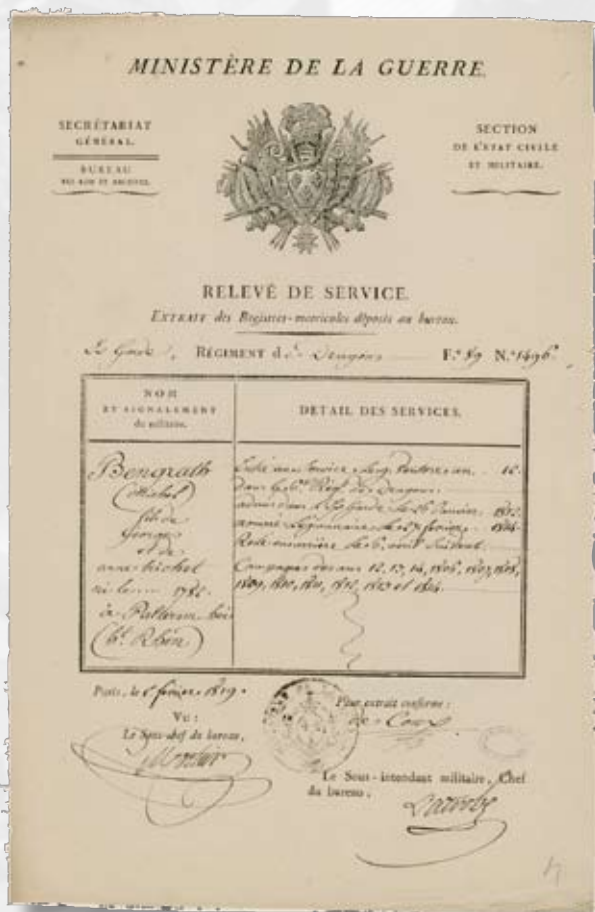 MINISTÈRE DE LA GUERRE.
SECRÉTARIAT
GÉNÉRAL.
BUREAU
SECTION
DE L'ETAT CIVILE
ET MILITAIRE.
RELEVÉ DE SERVICE.
EXTRAIT des Registres-matricules déposés au bureau.
Garde, RÉGIMENT de Dragons F.° 89 N.° 1496.
NOM
ET SIGNALEMENT
du militaire.
DETAIL DES SERVICES.
Bengrath
(Michel)
fils de
george
et de
anne
né le 1782
à
(bt. Rhin)
Entré au Service le an 12.
Dans le 6e. Régt. de Dragons.
admis dans la Garde le 26 1812.
nommé Légionnaire le 27 février 1814.
Campagnes des ans 12, 13, 14, 1806, 1807, 1808,
1809, 1810, 1811, 1812, 1813 et 1814.
Paris, le février 1819.
Vu :
Le Sous-chef du bureau,
Pour extrait conforme :
Le Sous-intendant militaire, Chef
du bureau,